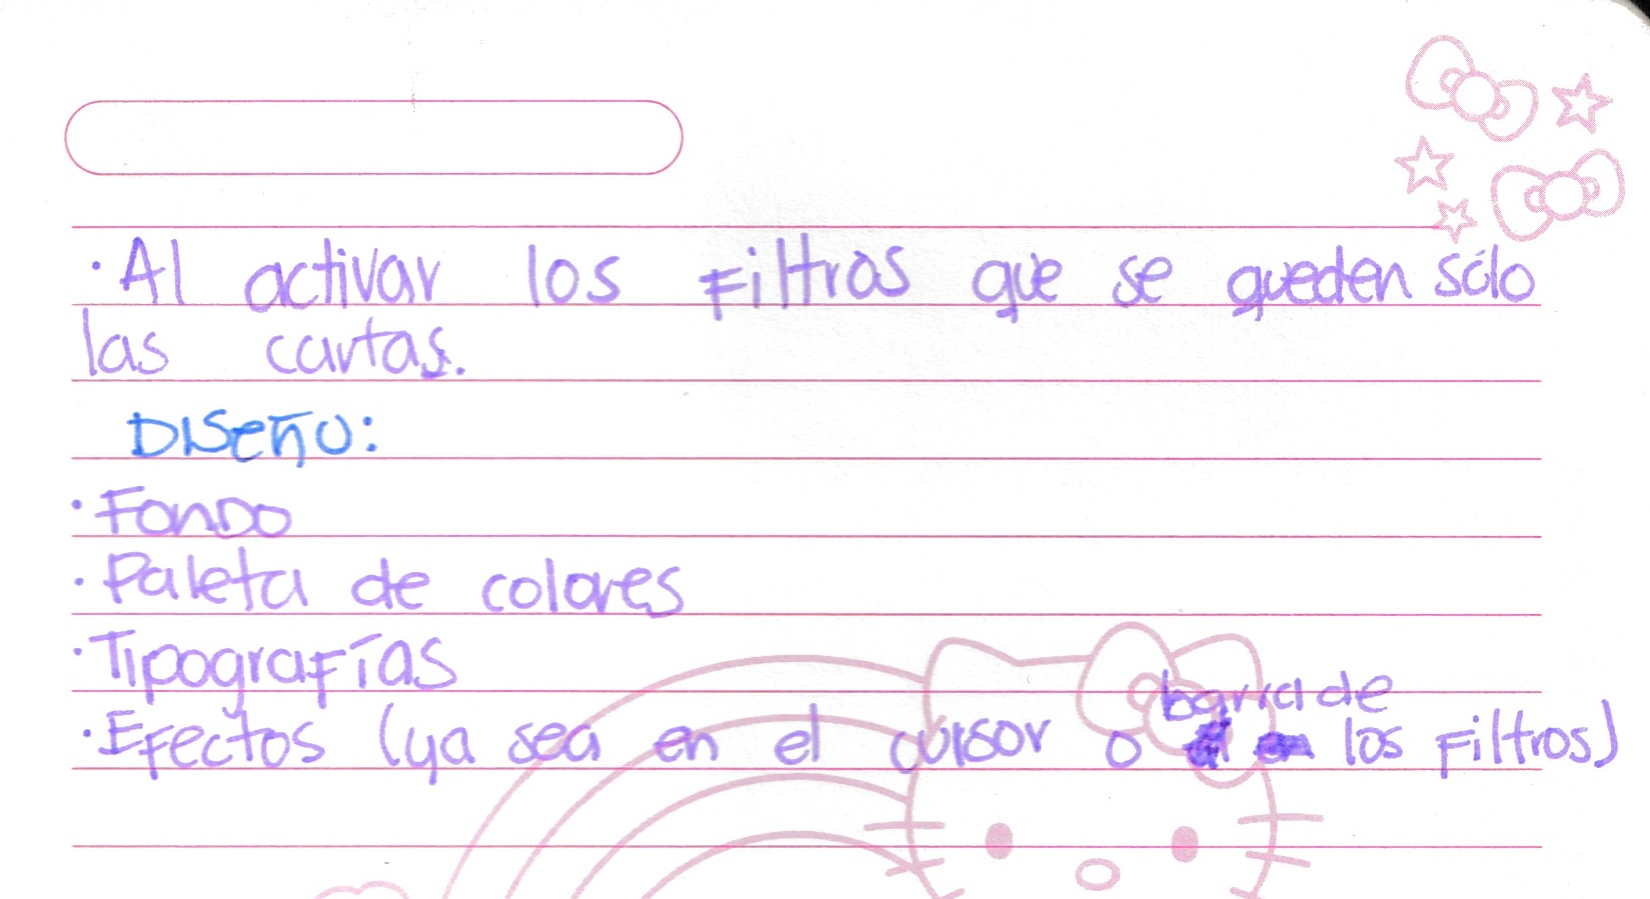 · Al activar los Filtros que se queden sólo
las cartas.
Diseño:
· Fondo
· Paleta de colores
· Tipografías
barra de
· Efectos (ya sea en el cursor o los Filtros)